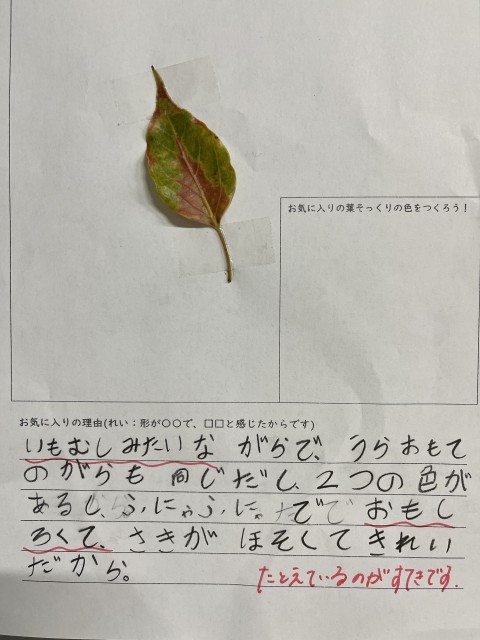 お気に入りの葉そっくりの色をつくろう！
お気に入りの理由(れい：形が〇〇で、□□と感じたからです)
いもむしみたいな がらで、うらおもて
のがらも 同じだし、2つの色が
あるし、ふにゃふにゃでおもし
ろくて、さきが ほそくてきれい
だから。
たとえているのがすてきです.